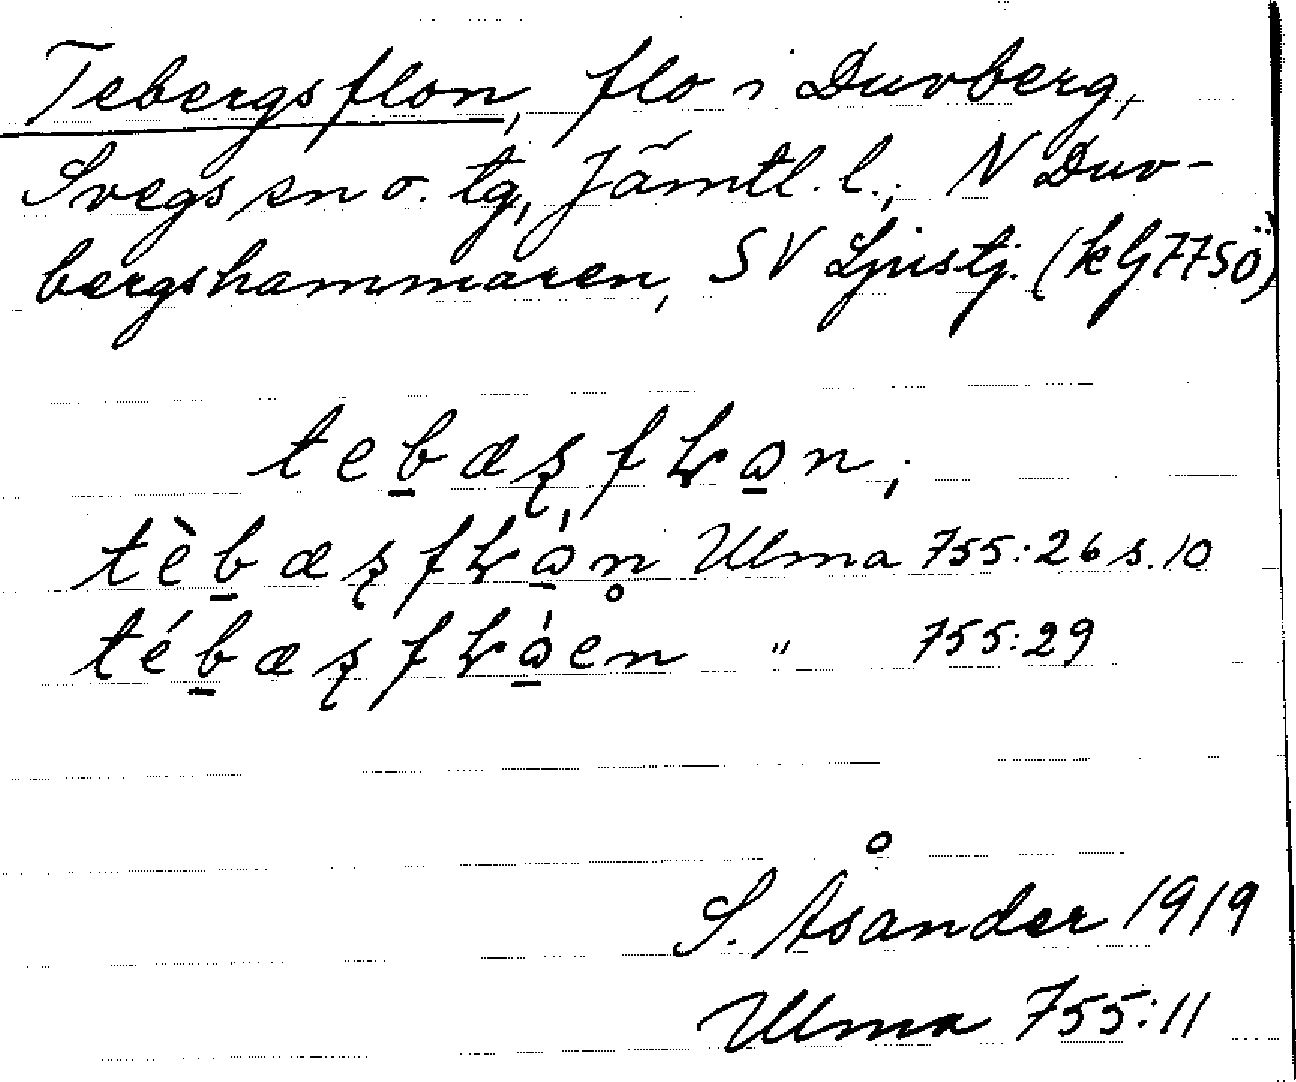 Tebergsflon, flo i Duvberg,
Svegs sn o. tg, Jämtl. l., N Duv-
bergshammaren, SV Ljustj. (kbl 77SÖ)
tebæʂfɽɑn,
tèbæʂfɽɑ̀n̥ Ulma 755:26 s. 10
tébæʂfɽɑ̀en " 755:29
S. Åsander 1919
Ulma 755:11